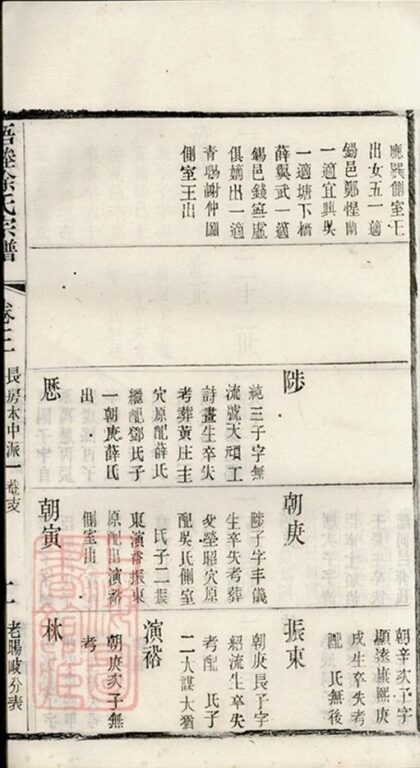 應巽側室王
出女五一適
錫邑鄭惺蘭
一適宜興吳
一適塘下橋
薛巽武一適
錫邑錢寧虛
俱嫡出一適
青暘謝仲圖
側室王出
陟
純三子字無
流號大頑工
詩畫生卒失
考葬黃庄主
穴原配薛氏
繼配鄧氏子
一朝庚薛氏
出
厯
朝庚
陟子字丰儀
生卒失考葬
昭穴原
配吳氏側室
氏子二振
東演裕振東
原配出演裕
側室出
朝寅
振東
朝辛次子字
順遠康熙庚
戌生卒失考
配 氏無後
演裕
朝庚長子字
紹流生卒失
考配 氏子
二大謀大猶
林
朝庚次子無
考
梧塍徐氏宗譜
卷十二
長房木中派一菴支
老暘岐分表